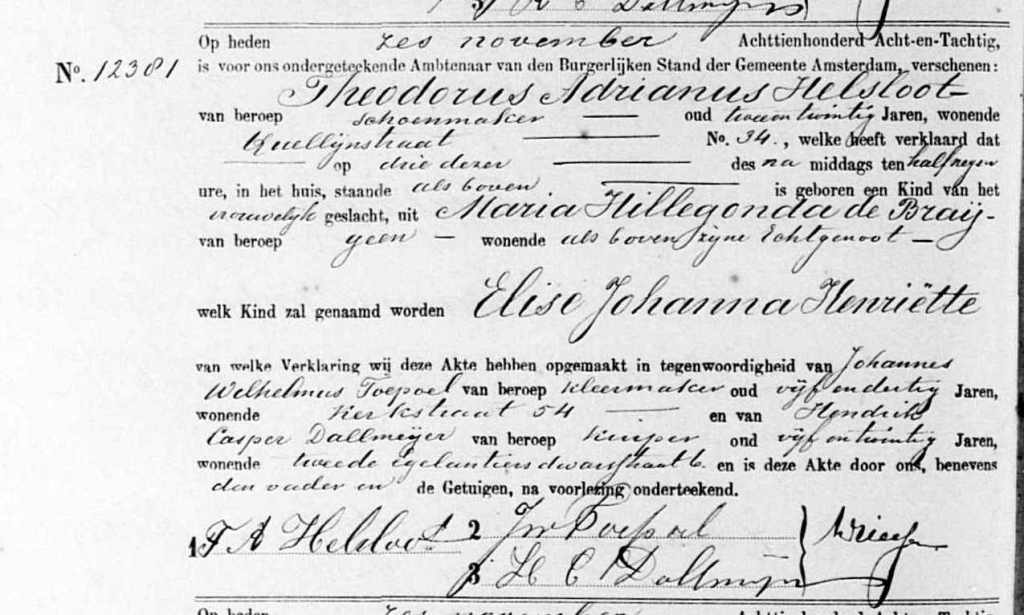 3) H C Dallmeijer
Op heden zes november Achttienhonderd Acht-en-Tachtig,
No. 12381 is voor ons ondergeteekende Ambtenaar van den Burgerlijken Stand der Gemeente Amsterdam, verschenen:
Theodorus Adrianus Helsloot
van beroep schoenmaker oud tweeentwintig Jaren, wonende
Quellijnstraat No. 34., welke heeft verklaard dat
op drie dezer des na middags ten half negen
ure, in het huis, staande als boven. is geboren een Kind van het
vrouwelijk geslacht, uit Maria Hillegonda de Braij-
van beroep geen — wonende als boven zijne Echtgenoot —
welk Kind zal genaamd worden Elise Johanna Henriëtte
van welke Verklaring wij deze Akte hebben opgemaakt in tegenwoordigheid van Johannes
Wilhelmus Toepoel van beroep kleermaker oud vijfendertig Jaren,
wonende Kerkstraat 54 en van Hendrik
Casper Dallmeijer van beroep kuiper oud vijfentwintig Jaren,
wonende tweede egelantiersdwarsstraat 6. en is deze Akte door ons, benevens
den vader en de Getuigen, na voorlezing onderteekend.
1 T A Helsloot 2 JW Toepoel
3 H C Dallmeijer
Op heden zes november Achttienhonderd Acht-en-Tachtig,